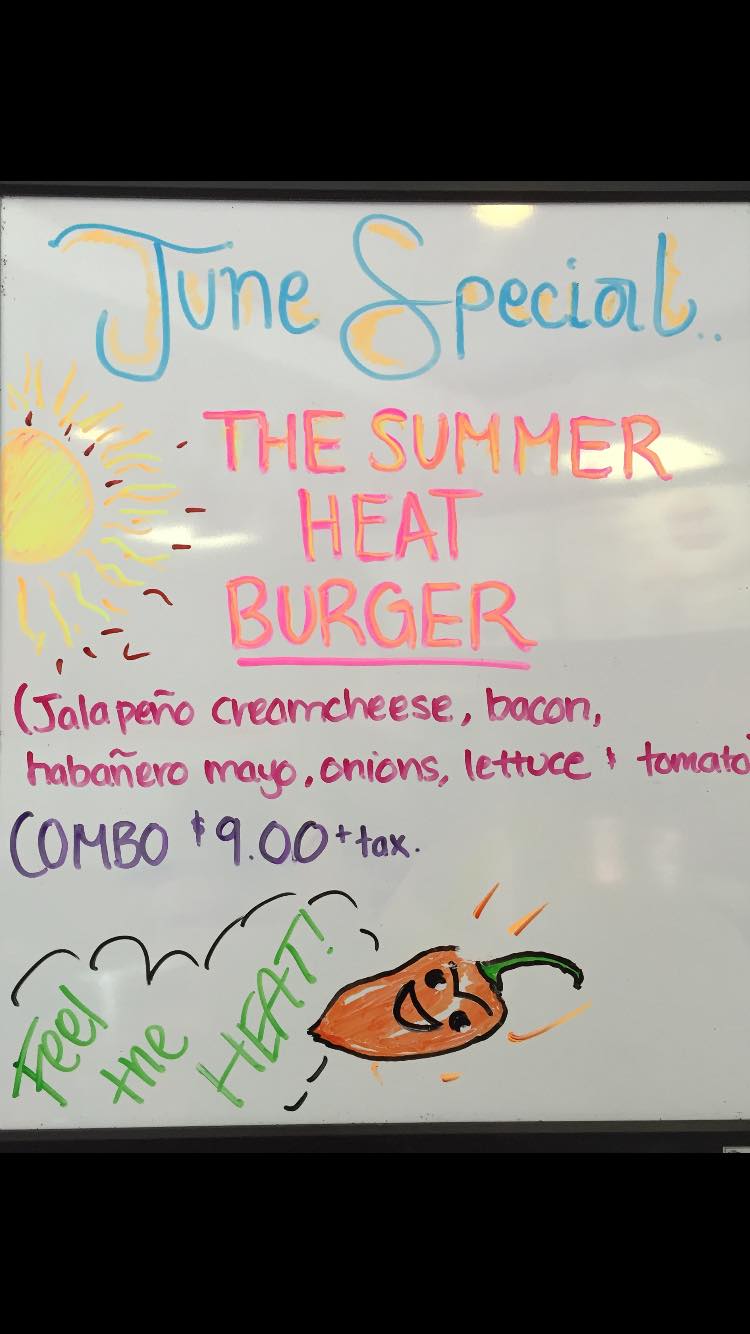 June Special..
THE SUMMER
HEAT
BURGER
(Jalapeño creamcheese, bacon,
habañero mayo, onions, lettuce & tomato
COMBO $9.00 + tax.
Feel
the
HEAT!